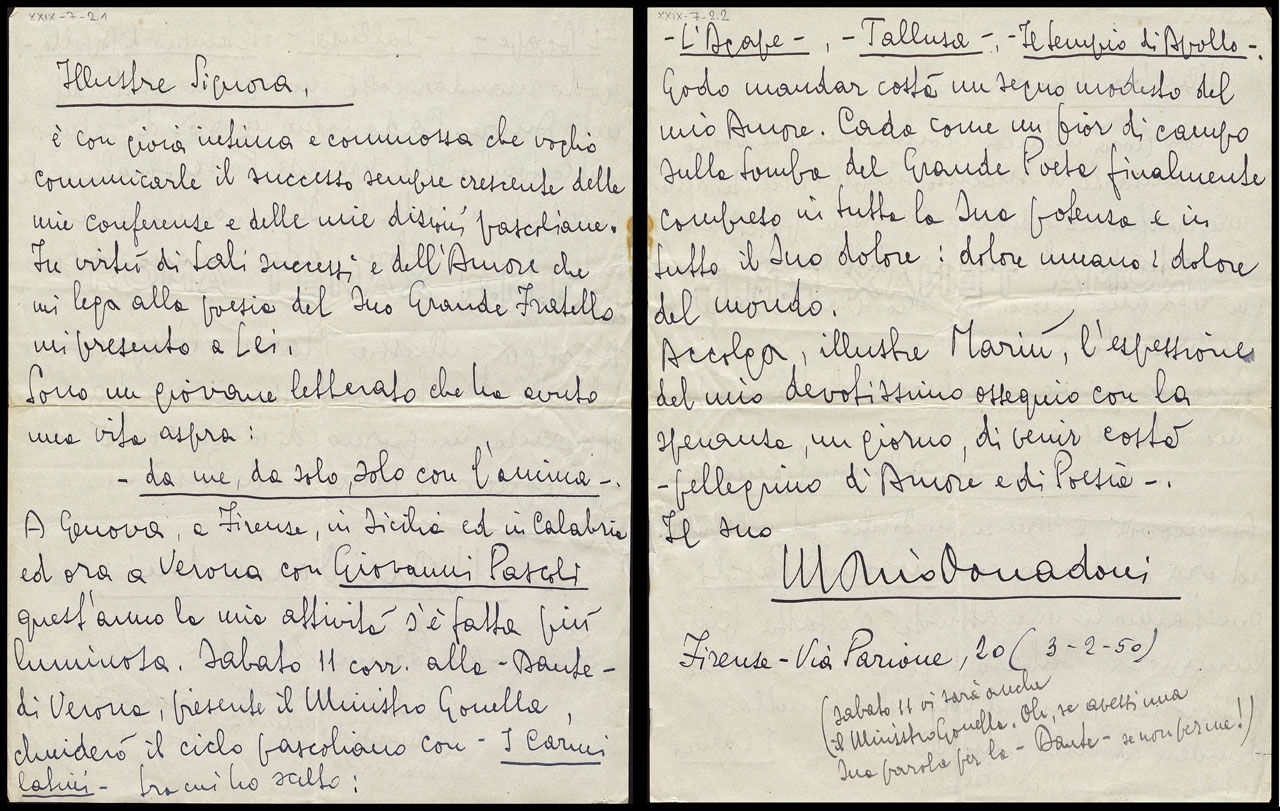 XXIX-7-2.1
Illustre Signora,
è con gioia intima e commossa che voglio
comunicarle il successo sempre crescente delle
mie conferenze e delle mie dizioni pascoliane.
In virtù di tali successi e dell'Amore che
mi lega alla poesia del Suo Grande Fratello
mi presento a Lei.
Sono un giovane letterato che ha avuto
una vita aspra:
- da me, da solo, solo con l'anima -.
A Genova, a Firenze, in Sicilia ed in Calabria
ed ora a Verona con Giovanni Pascoli
quest'anno la mia attività s'è fatta più
luminosa. Sabato 11 corr. alla - Dante -
di Verona, presente il Ministro Gonella,
chiuderò il ciclo pascoliano con - I Carmi
latini - tra cui ho scelto:
XXIX-7-2.2
- L'Agape -, - Tallusa -, - Il tempio di Apollo -.
Godo mandar costà un segno modesto del
mio Amore. Cada come un fior di campo
sulla tomba del Grande Poeta finalmente
compreso in tutta la Sua potenza e in
tutto il Suo dolore: dolore umano! dolore
del mondo.
Accolga, illustre Mariù, l'espessione
del mio devotissimo ossequio con la
speranza, un giorno, di venir costà
- pellegrino d'Amore e di Poesia -.
Il suo
Donadoni
Firenze - Via Parione, 20 (3-2-50)
(Sabato 11 vi sarà anche
il Ministro Gonella. Oh, se avessi una
Sua parola per la - Dante - se non per me!)